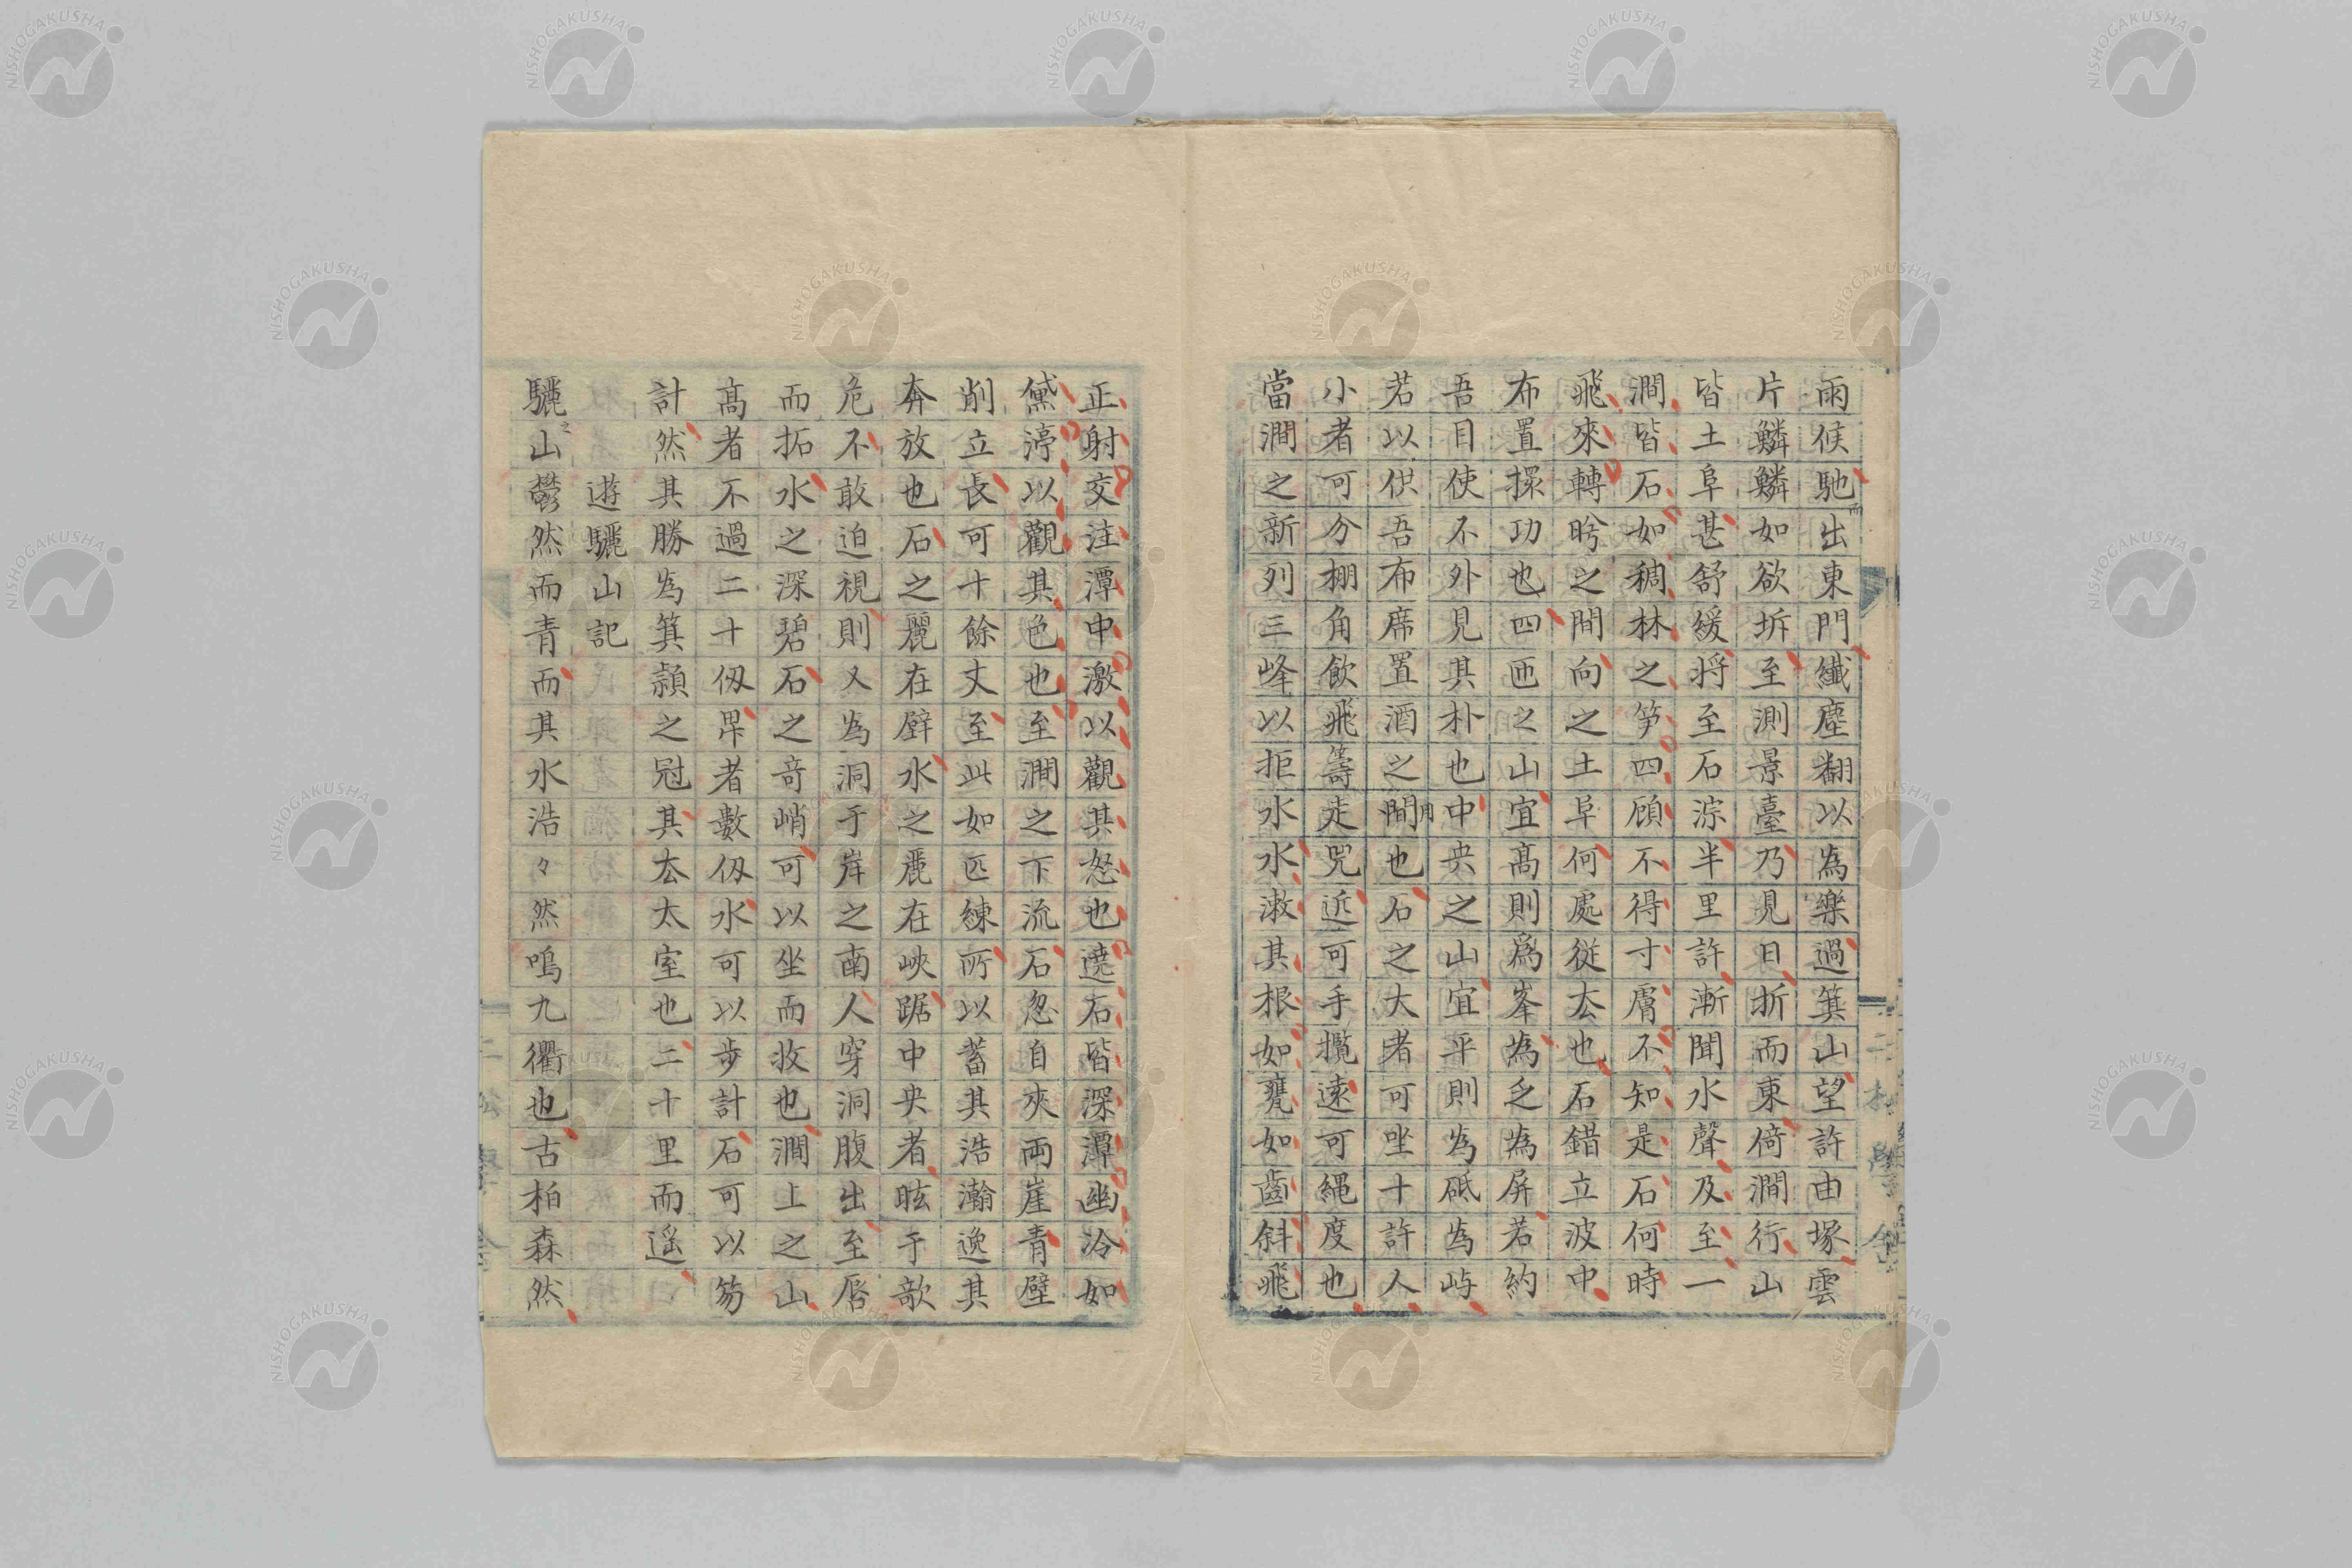 雨候馳出東門纖塵翻以為樂過箕山望許由塚雲
而
片鱗鱗如欲坼至測景臺乃見日折而東倚澗行山
皆土阜甚舒緩將至石淙半里許漸聞水聲及至一
澗皆石如稠林之笋四顧不得寸膚不知是石何時
飛來轉盻之間向之土阜何處従去也石錯立波中
布置操功也四匝之山宜高則爲峯為乏為屏若約
吾目使不外見其朴也中央之山宜平則為砥為屿
若以供吾布席置酒之間也石之大者可坐十許人
用
小者可分棚角飲飛籌走兕近可手攬遠可繩度也
當澗之新列三峰以拒水水漱其根如甕如齒斜飛
正射交注潭中激以觀其怒也遶石皆深潭幽冷如
黛渟以觀其色也至澗之下流石忽自夾兩崖青壁
削立長可十餘丈至此如匹練所以蓄其浩瀚逸其
奔放也石之麗在壁水之麗在峽踞中央者眩于歊
危不敢迫視則又為洞于岸之南人穿洞腹出至唇
而拓水之深碧石之竒峭可以坐而收也澗上之山
高者不過二十仭卑者數仭水可以步計石可以笏
計然其勝為箕潁之冠其去太室也二十里而遥
遊驪山記
驪山鬱然而青而其水浩々然鳴九衢也古柏森然
之
NISHOGAKUSHA